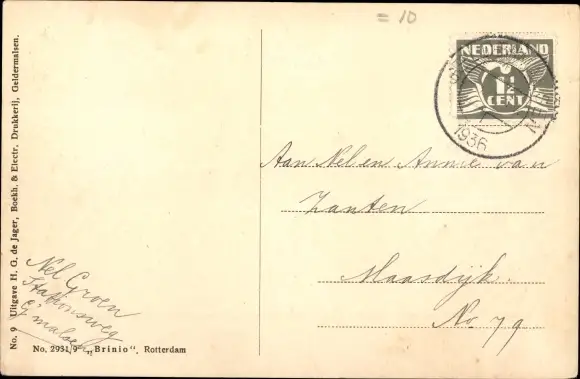 = 10
NEDERLAND
1½
CENT
1936
Aan Nel en Annie van
Zanten
Maasdijk.
No. 79
Nel Groen
Stationsweg
G'malsen
No. 9 Uitgave H. G. de Jager, Boekh. & Electr. Drukkerij, Geldermalsen.
No. 2931/9 „Brinio", Rotterdam